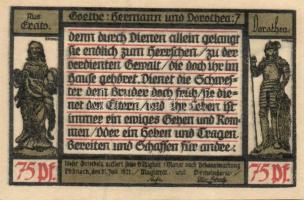 Goethe: Hermann und Dorothea:
Aus
Erato.
Dorothea.
denn durch Dienen allein gelangt
sie endlich zum Herrschen/zu der
verdienten Gewalt/die doch ihr im
Hause gehöret. Dienet die Schwes-
ter dem Bruder doch früh/sie die-
net den Eltern/und ihr Leben ist
immer ein ewiges Gehen und Kom-
men/Oder ein Heben und Tragen
Bereiten und Schaffen für andre.
75 Pf.
75 Pf.
Monat nach Bekanntmachung
den 31. Juli 1921. Magistrat und